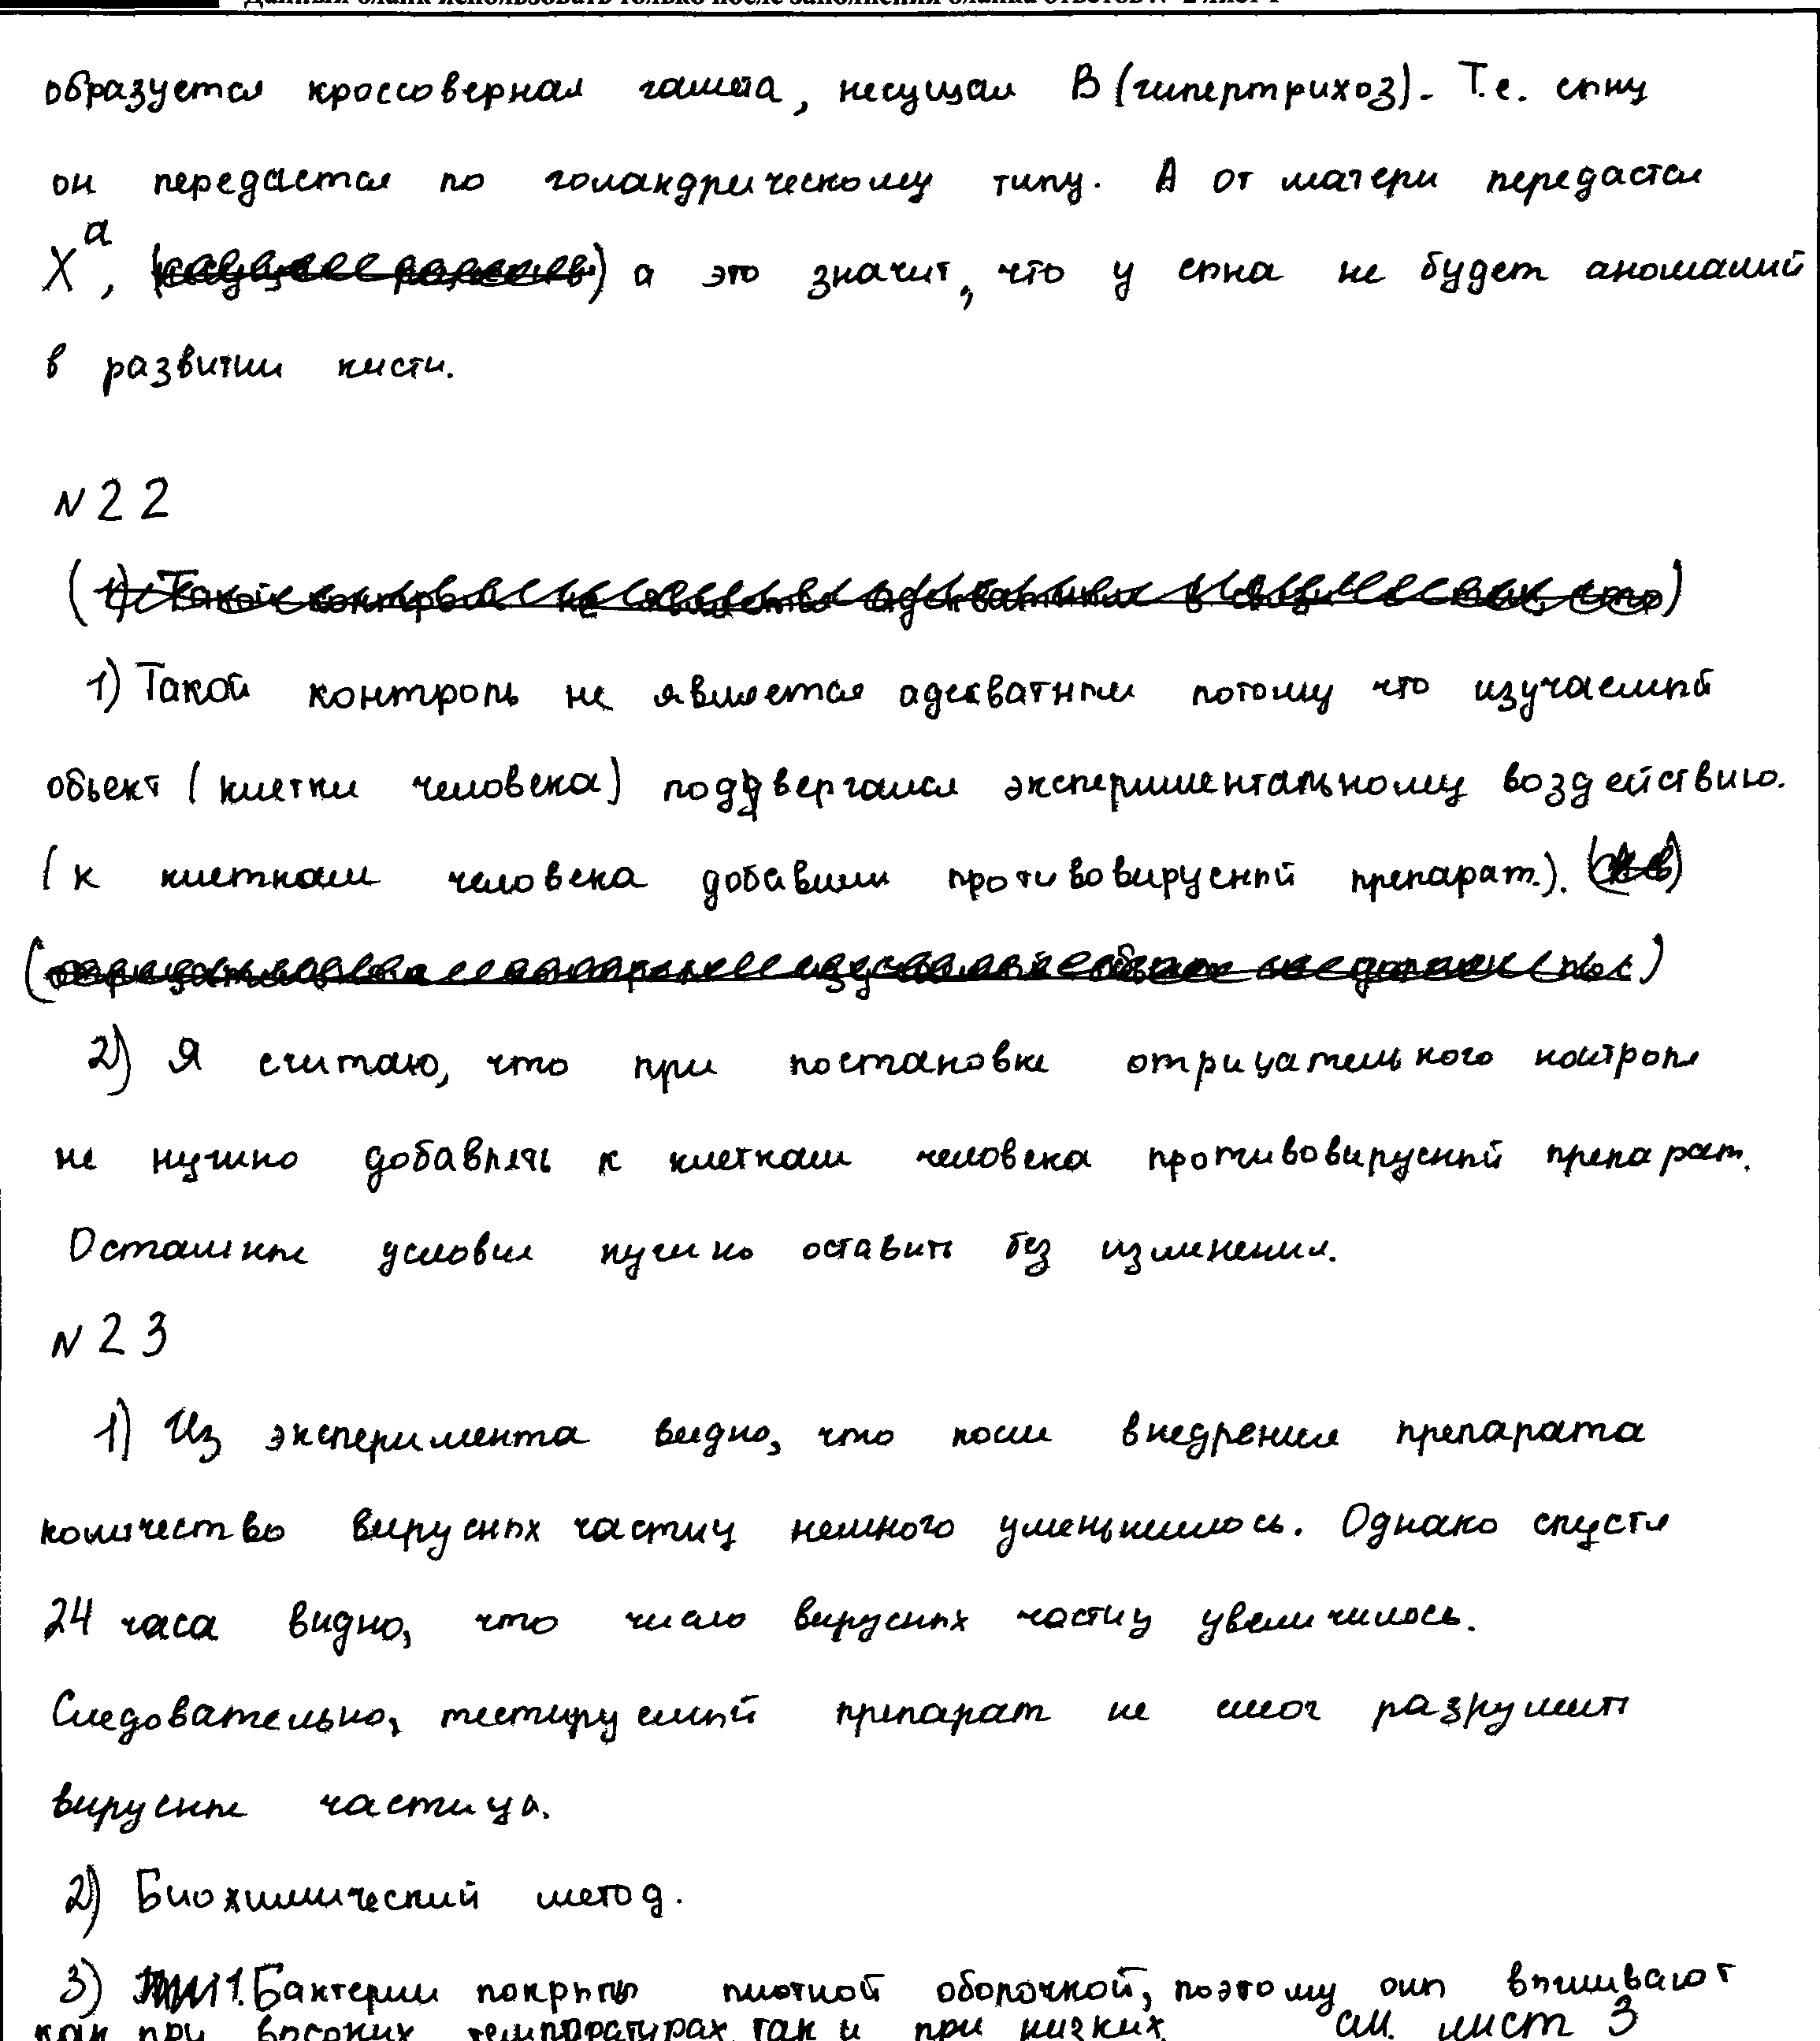 Данный бланк использовать только после заполнения бланка ответов № 2 лист 1
образуется кроссоверная гамета, несущая В (гипертрихоз). Т.е. сыну
он передастся по голандрическому типу. А от матери передастся
Xᵃ, а это значит, что у сына не будет аномалий
в развитии кисти.
N 22
(1) Такой контроль не является адекватным в связи с тем, что)
1) Такой контроль не является адекватным потому что изучаемый
объект (клетки человека) подвергался экспериментальному воздействию.
(к клеткам человека добавили противовирусный препарат.).
2) Я считаю, что при постановке отрицательного контроля
не нужно добавлять к клеткам человека противовирусный препарат.
Остальные условия нужно оставить без изменения.
N 23
1) Из эксперимента видно, что после внедрения препарата
количество вирусных частиц немного уменьшилось. Однако спустя
24 часа видно, что число вирусных частиц увеличилось.
Следовательно, тестируемый препарат не смог разрушить
вирусные частица.
2) Биохимический метод.
3) 1. Бактерии покрыты плотной оболочкой, поэтому они выживают
как при высоких температурах, так и при низких. см. лист 3